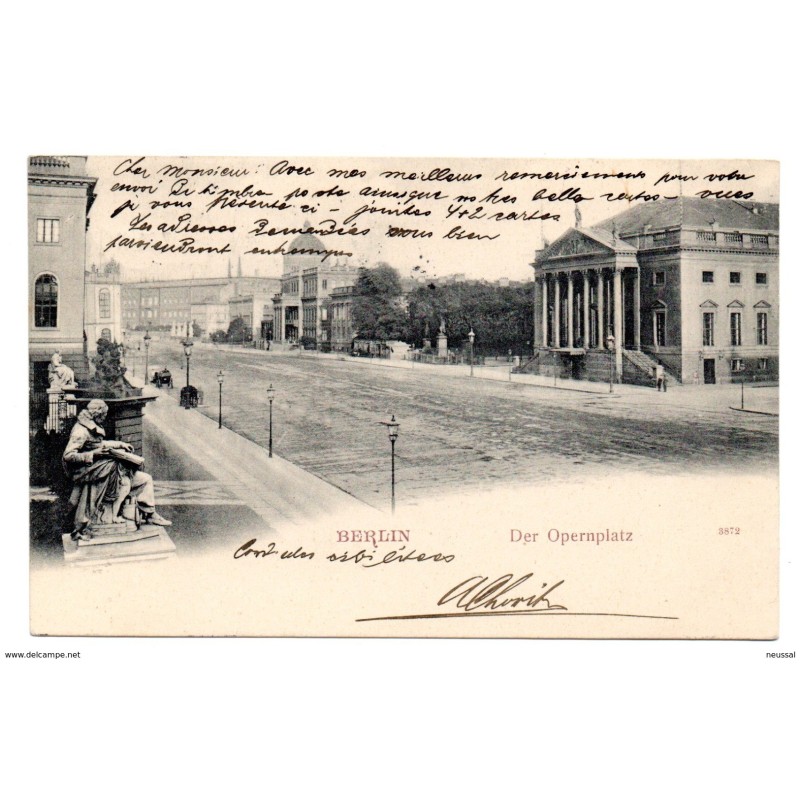 Cher Monsieur: Avec mes meilleurs remerciements pour votre
envoi De timbre poste ainsi que notes belle cartes - vues
je vous présente ci - jointes 4+2 cartes
Les adresses Demandées vous bien
parviendront
BERLIN
Der Opernplatz
3872
Cordiales
www.delcampe.net
neussal